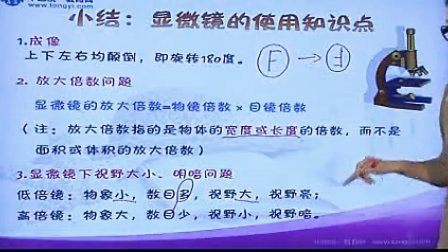 www.tongyi.com
小结：显微镜的使用知识点
1.成像
上下左右均颠倒，即旋转180度。
F → Ⅎ
2. 放大倍数问题
显微镜的放大倍数=物镜倍数×目镜倍数
（注：放大倍数指的是物体的宽度或长度的倍数，而不是
面积或体积的放大倍数）
3.显微镜下视野大小、明暗问题
低倍镜：物象小，数目多，视野大，视野亮；
高倍镜：物象大，数目少，视野小，视野暗。